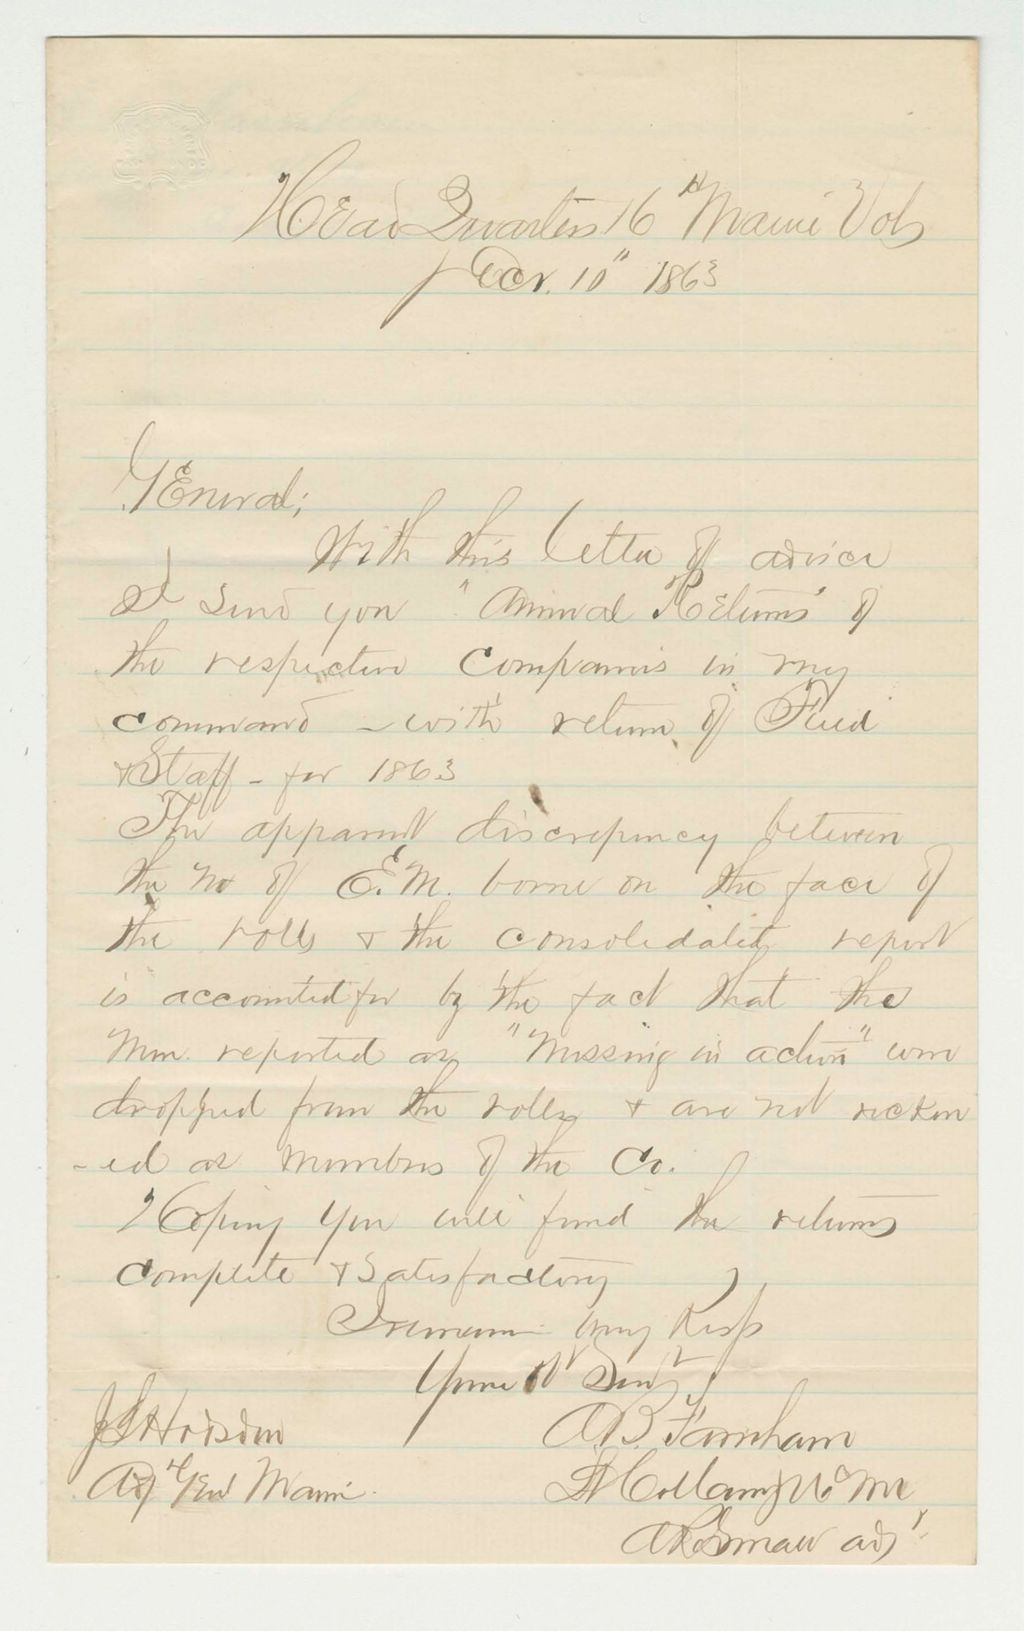 Head Quarters 16th Maine Vols
Dec. 10" 1863
General;
With this letter of advice
I send you "Annual Returns" of
the respective Companies in my
command - with return of Field
& Staff - for 1863
The apparent discrepency between
the No of E.M. borne on the face of
the rolls & the consolidated report
is accounted for by the fact that the
Men reported as "Missing in action" were
dropped from the rolls & are not reckon
-ed as members of the Co.
Hoping you will find the returns
complete & Satisfactory
I remain Very Resp
Your Obt Servt
J L Hodsdon
Adj Gen Maine
A.B. Farnham
Lt Col Comdg 16 Me
A R Small adjt